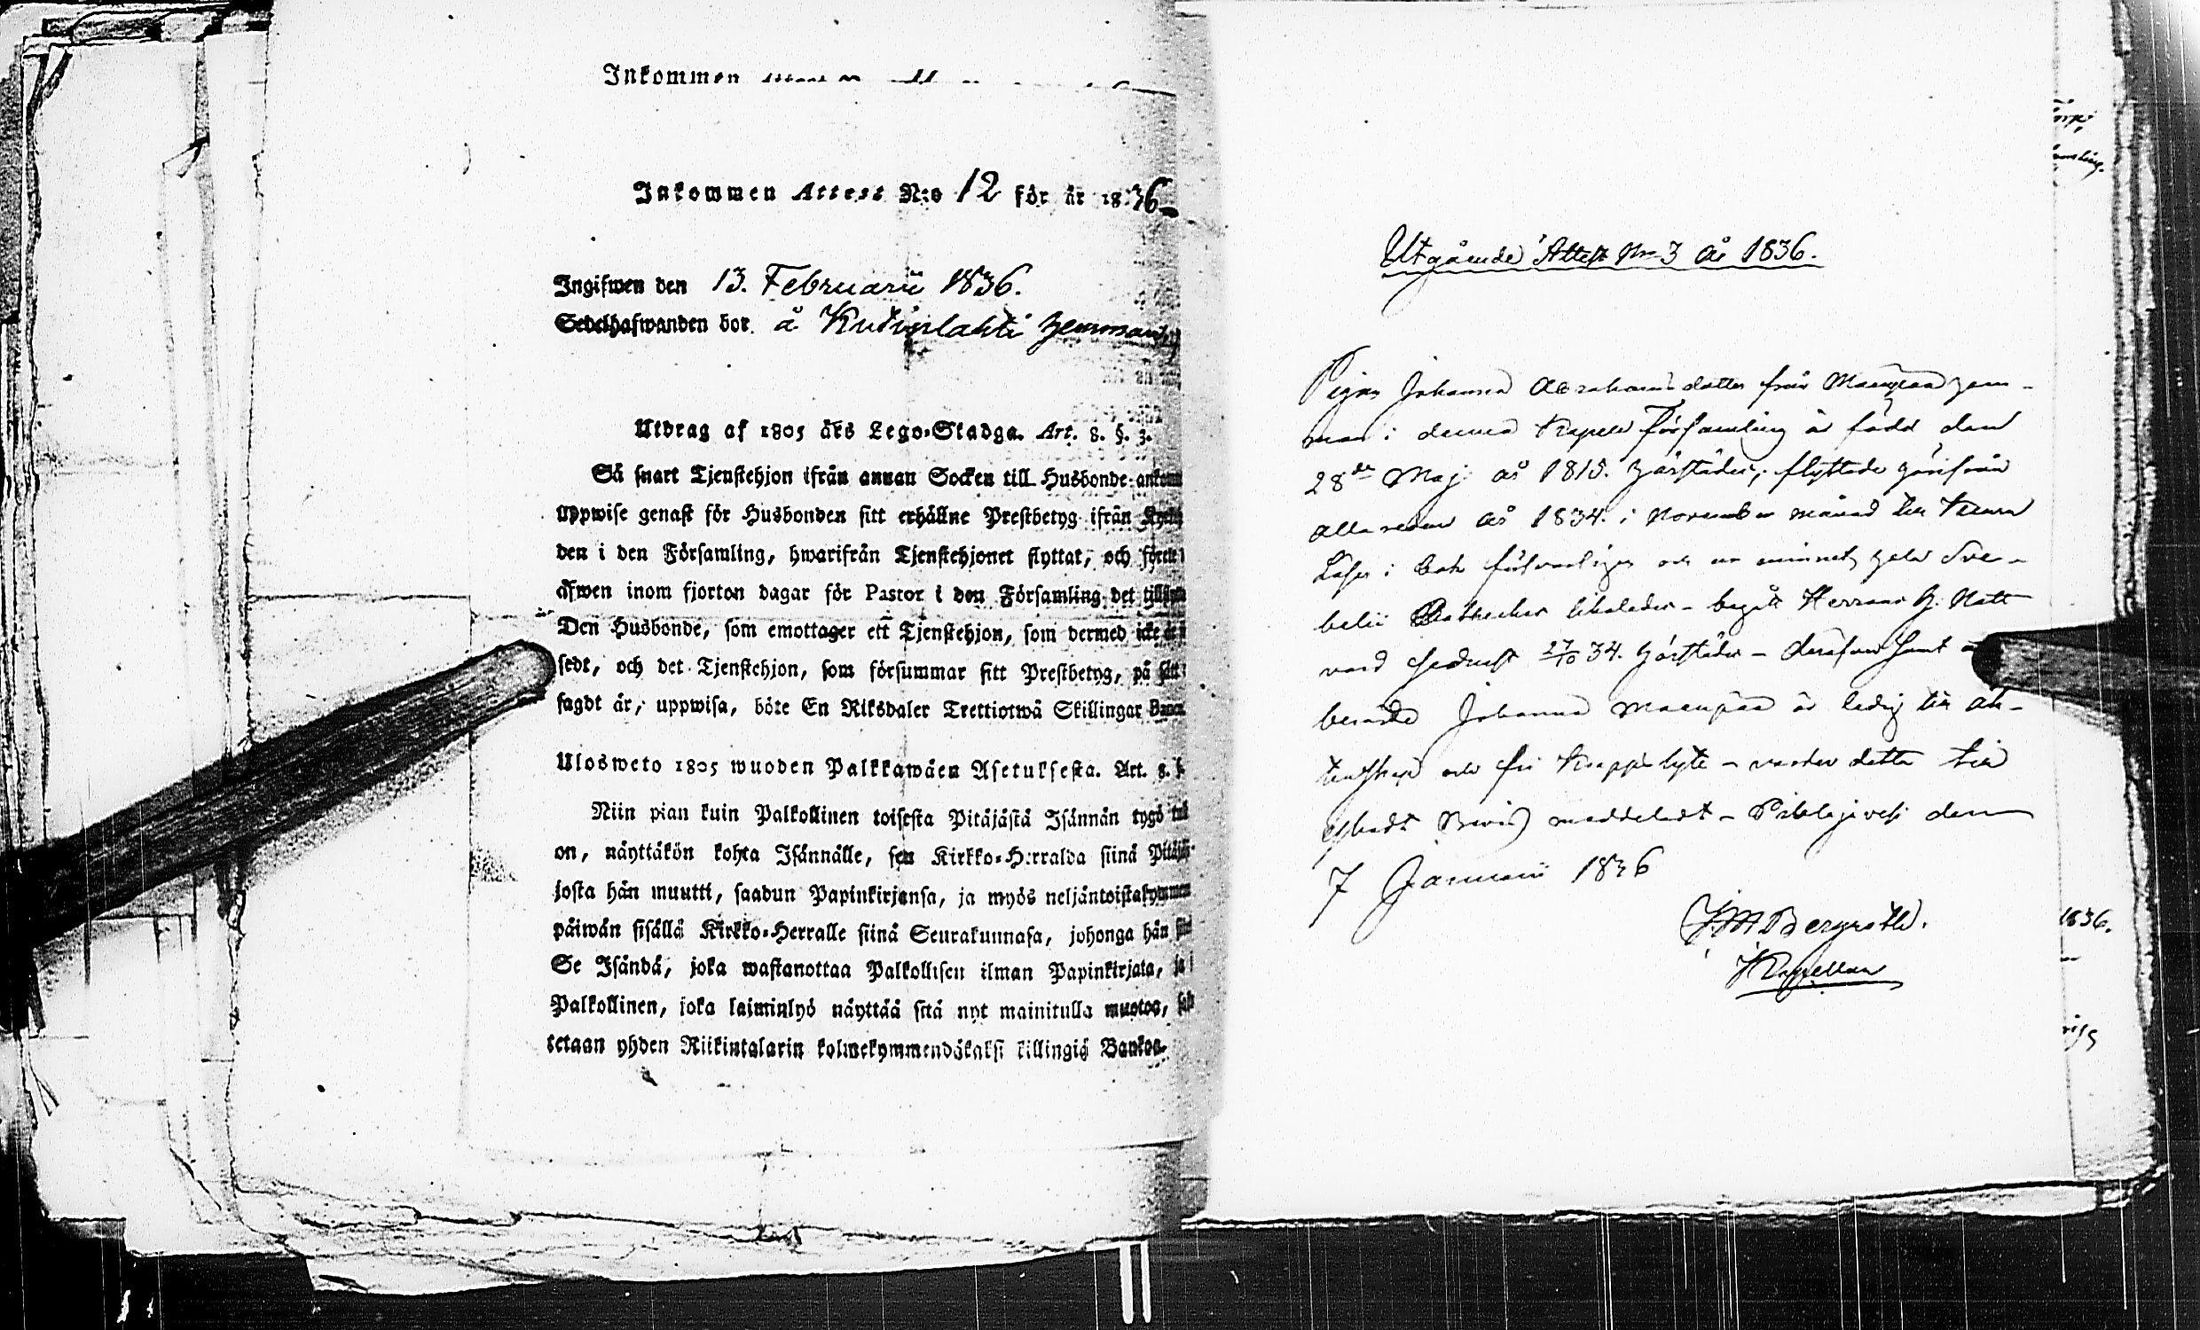 Inkommen
Inkommen Attest N:o 12 för år 1836
Ingifwen den 13. Februarii 1836.
Sedelhafwanden bor å Kutinlahti hemman
Utdrag af 1805 års Lego-Stadga. Art. 8. §. 3.
Så snart Tjenstehjon ifrån annan Socken till Husbonde
uppwise genast för Husbonden sitt erhållne Prestbetyg ifrån
den i den Församling, hwarifrån Tjenstehjonet flyttat, och
äfwen inom fjorton dagar för Pastor i den Församling det
Den Husbonde, som emottager ett Tjenstehjon, som dermed icke
sedt, och det Tjenstehjon, som försummar sitt Prestbetyg, på
sagdt är, uppwisa, böte En Riksdaler Trettiotwå Skillingar
Ulosweto 1805 wuoden Palkkawäen Asetuksesta. Art. 8.
Niin pian kuin Palkollinen toisesta Pitäjästä Isännän tygö
on, näyttäkön kohta Isännälle, sen Kirkko-Herralda siinä
josta hän muutti, saadun Papinkirjansa, ja myös
päiwän sisällä Kirkko-Herralle siinä Seurakunnasa, johonga hän
Se Isändä, joka wastanottaa Palkollisen ilman Papinkirjata, ja
Palkollinen, joka laiminlyö näyttää sitä nyt mainitulla muotoa,
tetaan yhden Riikintalarin kolmekymmendäkaksi killingiä Bankos.
Utgående Attest Nr 3 år 1836.
Pigan Johanna Abrahamsdotter från Maenpää hem-
man i denna Kapell Församling är född den
28de Maj år 1815. härstädes, flyttade härifrån
allaredan år 1834. i November månad till
Läser i bok försvarligen och ur minnet hela Sve-
belii - begått Herrans H. Natt-
vard sednast 27/10 34. härstädes - derjemte samt
berörde Johanna Maenpää är ledig till äk-
tenskap och fri - varder detta till
meddeladt - Pihlajavesi den
7 Januarii 1836
Bergroth.
Kapellan
1836.